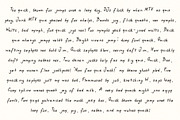 The quick, brown fox jumps over a lazy dog. DJs flock by when MTV ax quiz
prog. Junk MTV quiz graced by fox whelps. Bawds jog, flick quartz, vex nymphs.
Waltz, bad nymph, for quick jigs vex! Fox nymphs grab quick-jived waltz. Brick
quiz whangs jumpy veldt fox. Bright vixens jump; dozy fowl quack. Quick
wafting zephyrs vex bold Jim. Quick zephyrs blow, vexing daft Jim. Sex-charged
fop blew my junk TV quiz. How quickly daft jumping zebras vex. Two driven jocks help fax my big quiz. Quick, Baz,
get my woven flax jodhpurs! "Now fax quiz Jack!" my brave ghost pled. Five
quacking zephyrs jolt my wax bed. Flummoxed by job, kvetching W. zaps Iraq.
Cozy sphinx waves quart jug of bad milk. A very bad quack might jinx zippy
fowls. Few quips galvanized the mock jury box. Quick brown dogs jump over the
lazy fox. The jay, pig, fox, zebra, and my wolves quack!